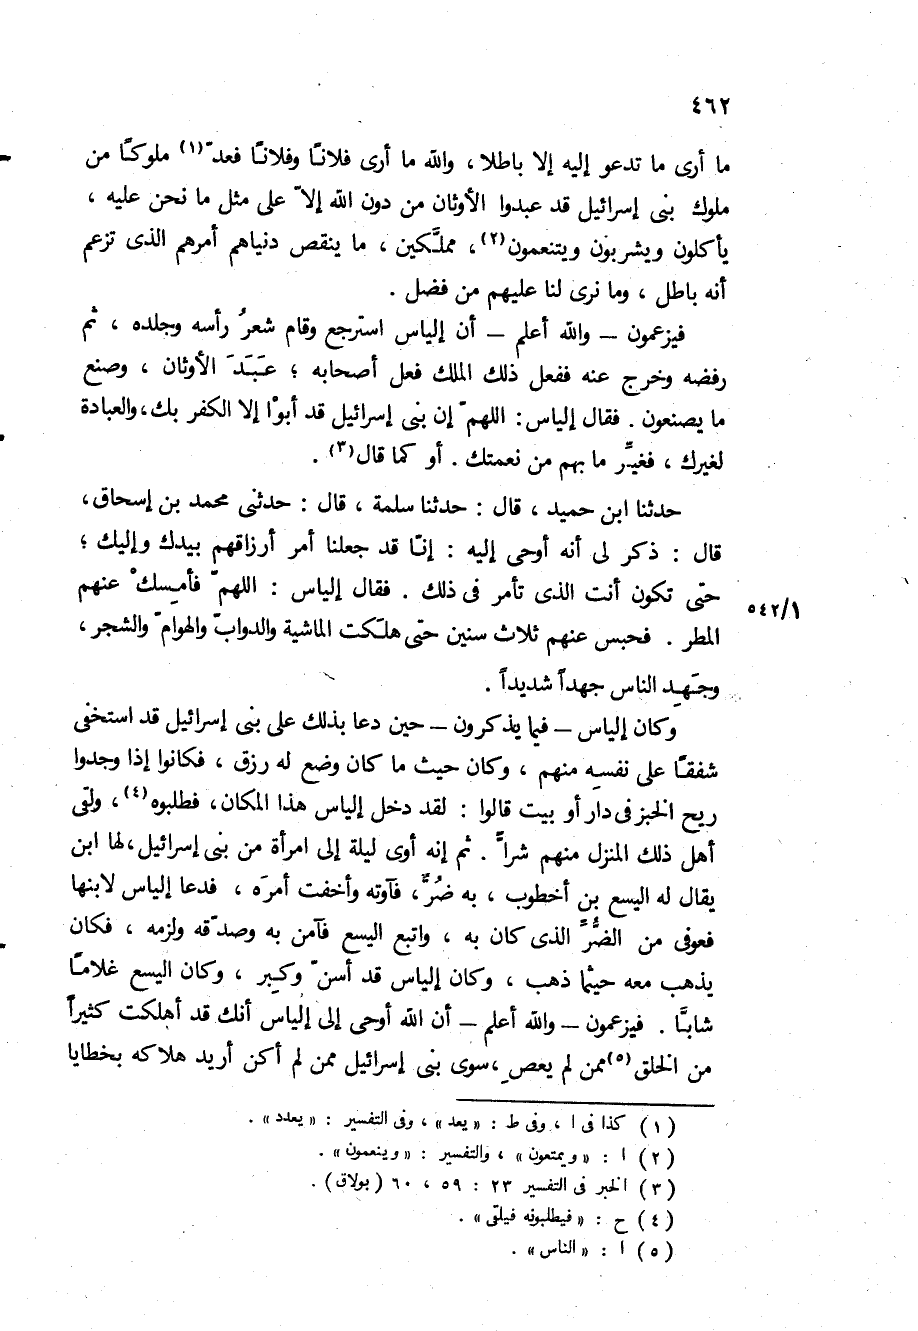 ٤٦٢
ما أرى ما تدعو إليه إلا باطلا، والله ما أرى فلانًا وفلانًا فعدّ(١) ملوكًا من
ملوك بنى إسرائيل قد عبدوا الأوثان من دون الله إلاّ على مثل ما نحن عليه ،
يأكلون ويشربون ويتنعمون(٢)، مملَّكين ، ما ينقص دنياهم أمرهم الذى تزعم
أنه باطل ، وما نرى لنا عليهم من فضل .
فيزعمون – والله أعلم – أن إلياس استرجع وقام شعرُ رأسه وجلده ، ثم
رفضه وخرج عنه ففعل ذلك الملك فعل أصحابه ؛ عَبَدَ الأوثان ، وصنع
ما يصنعون . فقال إلياس: اللهمّ إن بنى إسرائيل قد أبوْا إلا الكفر بك،والعبادة
لغيرك ، فغيِّر ما بهم من نعمتك . أو كما قال(٣) .
حدثنا ابن حميد ، قال : حدثنا سلمة ، قال : حدثنى محمد بن إسحاق،
قال : ذكر لى أنه أوحى إليه : إنّا قد جعلنا أمر أرزاقهم بيدك وإليك ؛
حتى تكون أنت الذى تأمر فى ذلك . فقال إلياس : اللهمّ فأمسِكْ عنهم
٥٤٢/١
المطر . فحبس عنهم ثلاث سنين حتى هلَكت الماشية والدوابّ والهوامّ والشجر،
وجَهِد الناس جهداً شديداً .
وكان إلياس – فيما يذكرون – حين دعا بذلك على بنى إسرائيل قد استخفى
شفقًا على نفسه منهم ، وكان حيث ما كان وضع له رزق ، فكانوا إذا وجدوا
ريح الخبز فى دار أو بيت قالوا : لقد دخل إلياس هذا المكان، فطلبوه(٤)، ولقى
أهل ذلك المنزل منهم شرًّا . ثم إنه أوى ليلة إلى امرأة من بنى إسرائيل،لها ابن
يقال له اليسع بن أخطوب ، به ضُرٌّ، فآوته وأخفت أمرَه ، فدعا إلياس لابنها
فعوفى من الضُّرِّ الذى كان به ، واتبع اليسع فآمن به وصدّقه ولزمه ، فكان
يذهب معه حيثما ذهب ، وكان إلياس قد أسنّ وكبِر ، وكان اليسع غلامًا
شابًّا . فيزعمون – والله أعلم – أن الله أوحى إلى إلياس أنك قد أهلكت كثيراً
من الخلق(٥)ممن لم يعصِ،سوى بنى إسرائيل ممن لم أكن أريد هلاكه بخطايا
(١) كذا فى ا ، وفى ط : «يعد» ، وفى التفسير : «يعدد» .
(٢) ا : «ويمتعون» ، والتفسير : «وينعمون» .
(٣) الخبر فى التفسير ٢٣ : ٥٩ ، ٦٠ (بولاق) .
(٤) ح : «فيطلبونه فيلقى» .
(٥) ا : «الناس» .